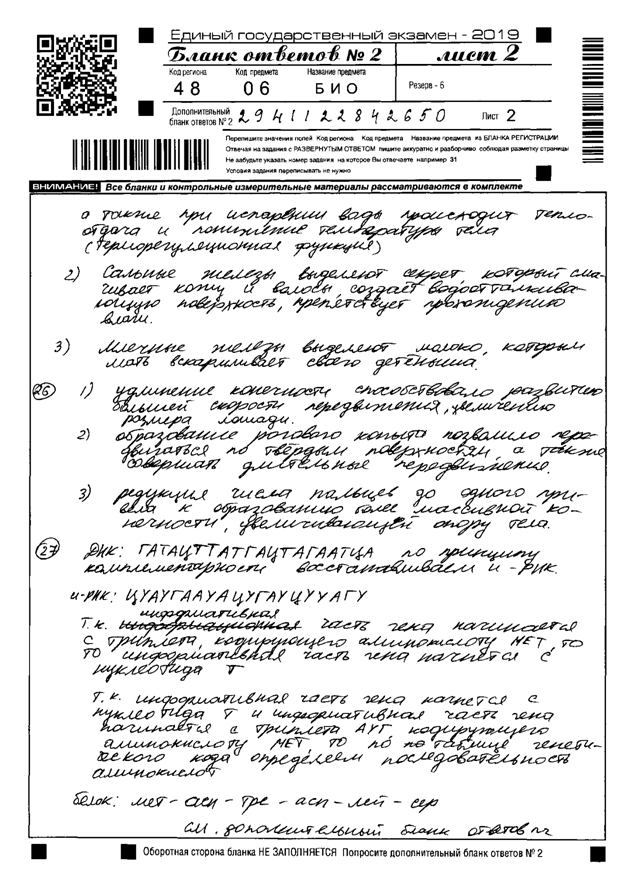 Единый государственный экзамен - 2019
Бланк ответов № 2 лист 2
Код региона Код предмета Название предмета
48 06 БИО Резерв - 6
Дополнительный
бланк ответов № 2 2941122842650 Лист 2
Перепишите значения полей Код региона Код предмета Название предмета из БЛАНКА РЕГИСТРАЦИИ
Отвечая на задания с РАЗВЕРНУТЫМ ОТВЕТОМ пишите аккуратно и разборчиво соблюдая разметку страницы
Не забудьте указать номер задания на которое Вы отвечаете например 31
Условия задания переписывать не нужно
ВНИМАНИЕ! Все бланки и контрольные измерительные материалы рассматриваются в комплекте
а также при испарении воды происходит тепло-
отдача и понижение температуры тела
(терморегуляционная функция)
2) Сальные железы выделяют секрет который сма-
чивает кожу и волосы, создаёт водоотталкива-
ющую поверхность, препятствует прохождению
влаги.
3) Млечные железы выделяют молоко, которым
мать вскармливает своего детёныша.
26 1) удлинение конечности способствовало развитию
большей скорости передвижения, увеличению
размера лошади.
2) образование рогового копыта позволило пере-
двигаться по твёрдым поверхностям, а также
совершать длительные передвижение.
3) редукция числа пальцев до одного при-
вела к образованию более массивной ко-
нечности, увеличивающей опору тела.
27 ДНК: ГАТАЦТТАТГАЦТАГААТЦА по принципу
комплементарности восстанавливаем и-РНК.
и-РНК: ЦУАУГААУАЦУГАУЦУУАГУ
информативная
Т.к. информационная часть гена начинается
с триплета, кодирующего аминокислоту МЕТ, то
то информативная часть гена начнётся с
нуклеотида Т
Т.к. информативная часть гена начнется с
нуклеотида Т и информативная часть гена
начинается с триплета АУГ, кодирующего
аминокислоту МЕТ, то по по таблице генети-
ческого кода определяем последовательность
аминокислот
белок: мет - асп - тре - асп - лей - сер
см. дополнительный бланк ответов №2
Оборотная сторона бланка НЕ ЗАПОЛНЯЕТСЯ Попросите дополнительный бланк ответов № 2